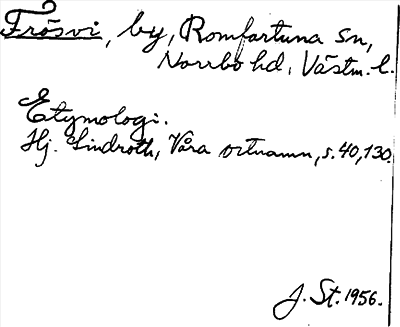 Frösvi, by, Romfartuna sn,
Norrbo hd, Västm. l.
Etymologi.
Hj. Lindroth, Våra ortnamn, s. 40, 130.
J. St. 1956.